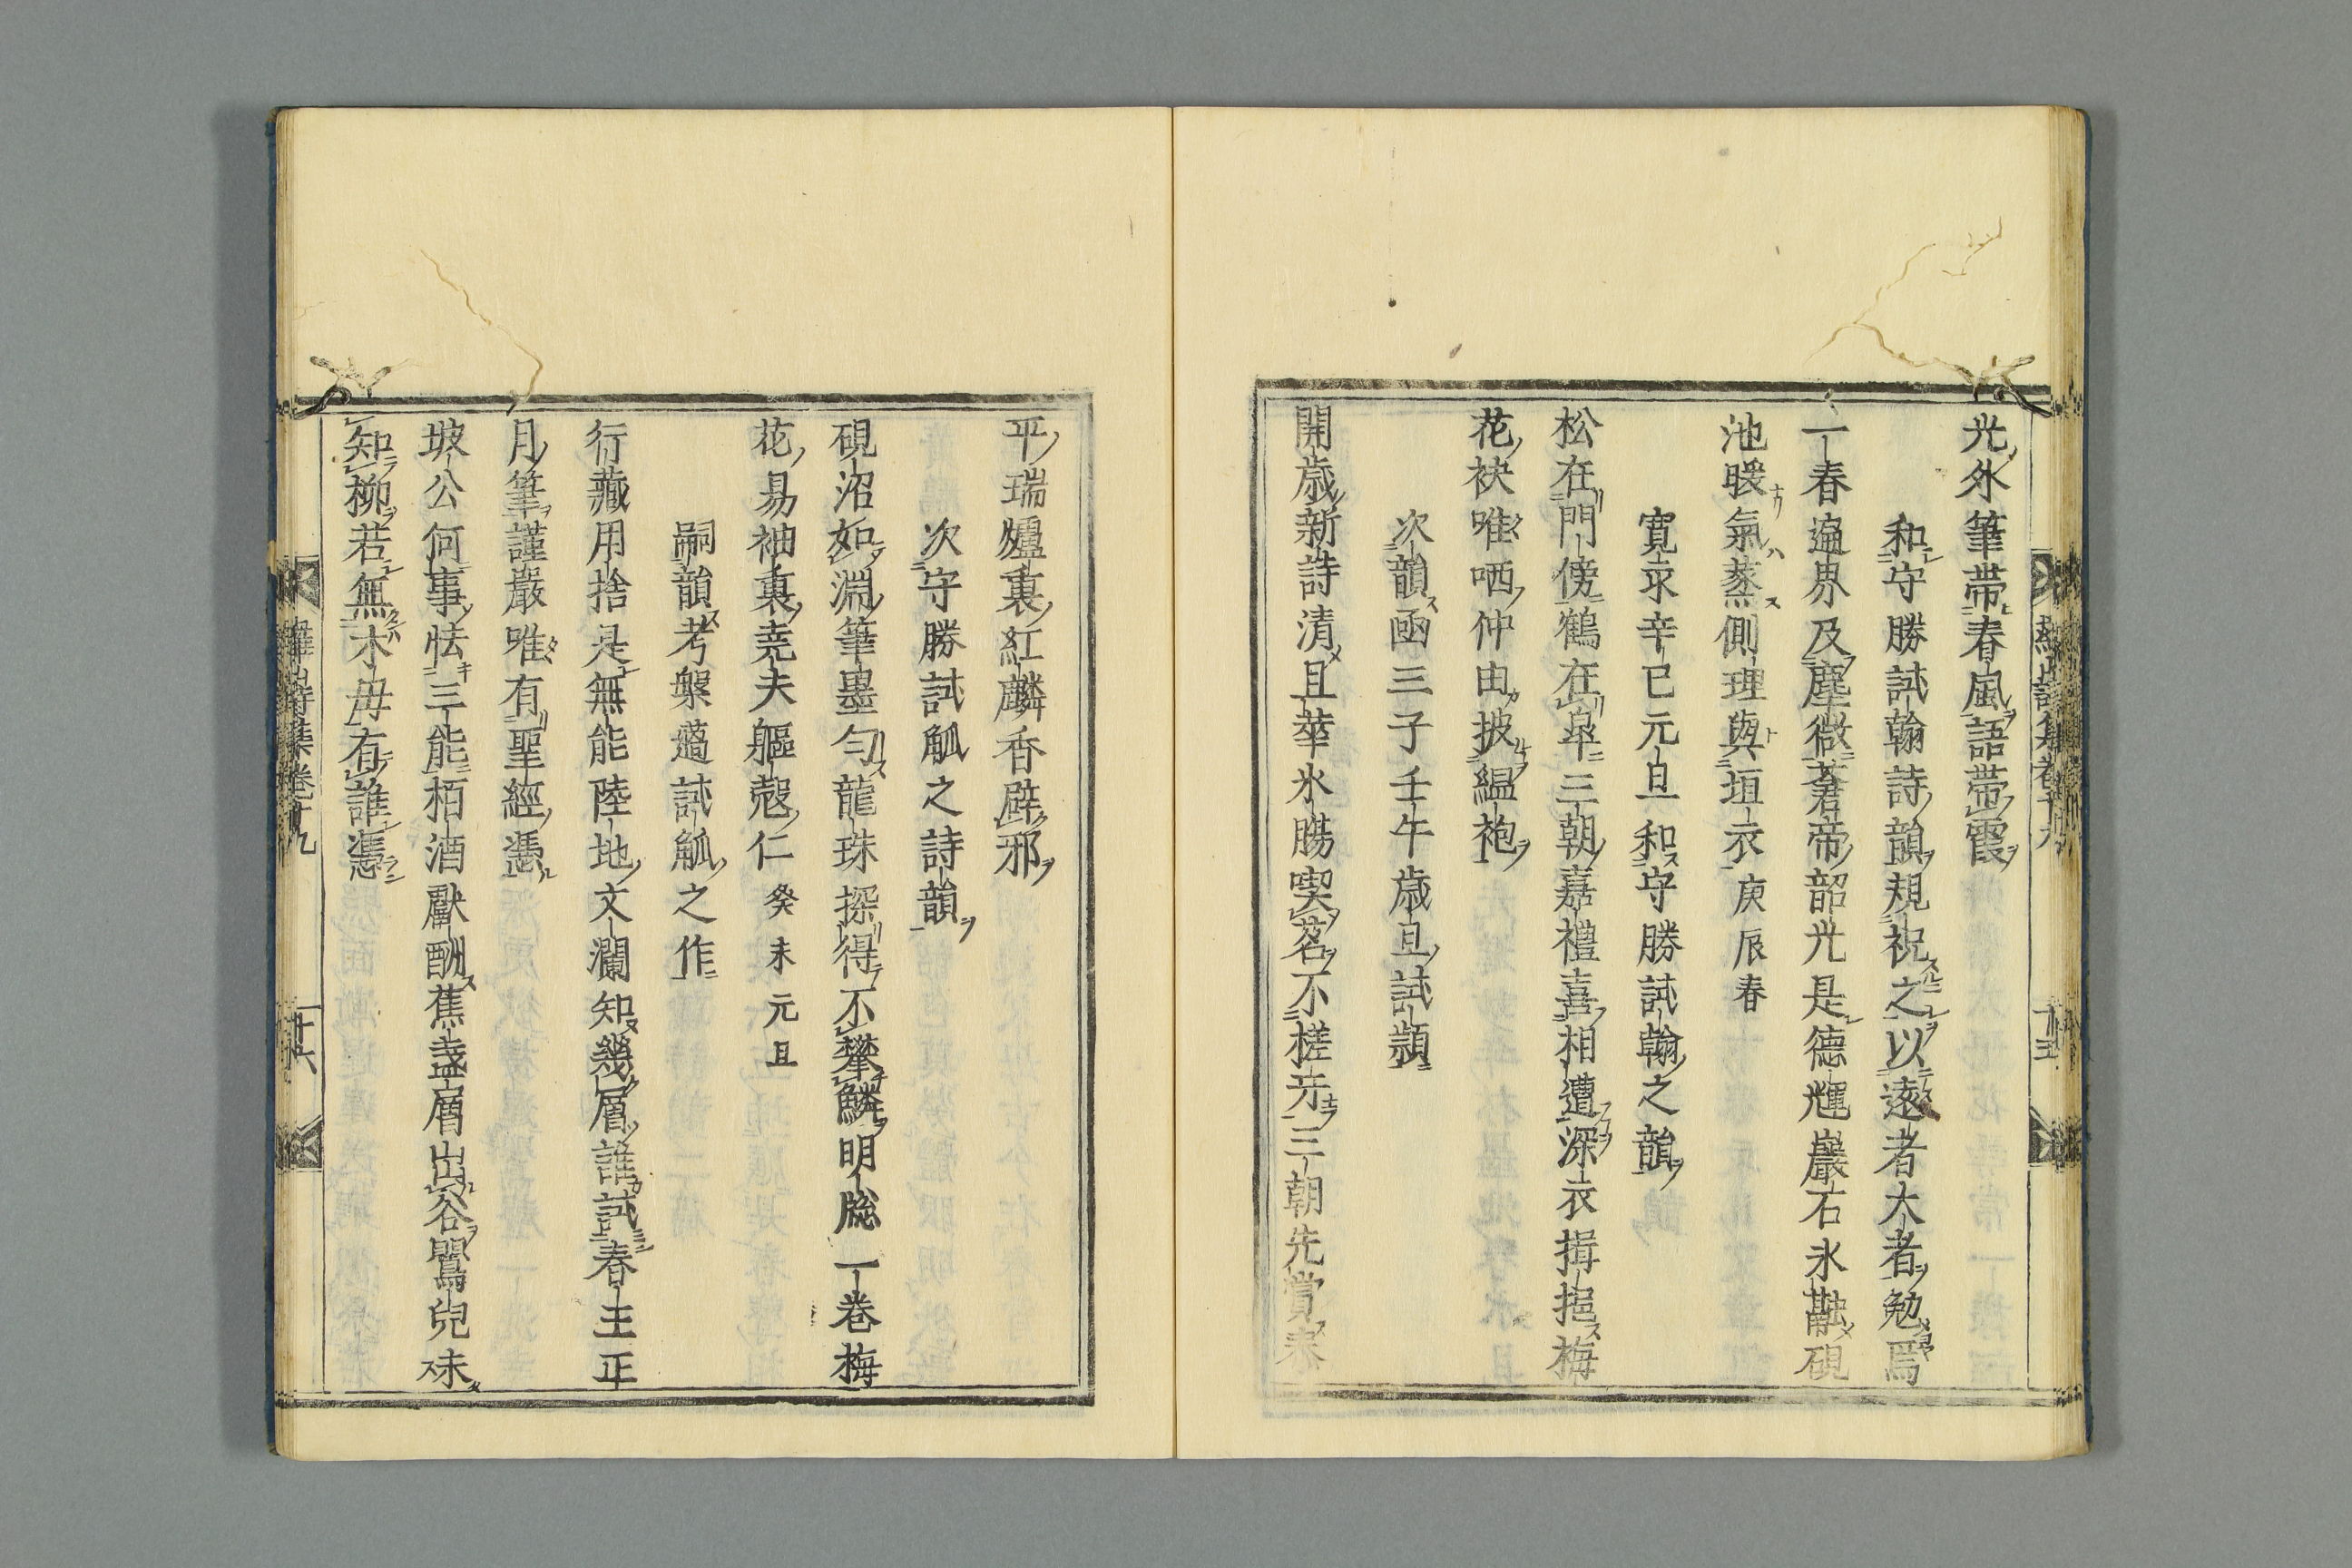 光外筆帶春嵐語帶霞
和守勝試翰詩韻規祝之以遠者大者勉焉
一春遍界及塵微蒼帝韶光是德輝巖石氷融硯
池暖氣蒸側理與垣衣庚辰春
寬永辛巳元旦和守勝試翰之韻
松在門傍鶴在皐三朝嘉禮喜相遭深衣揖挹梅
花袂唯哂仲由披縕袍
次韻函三子壬午歲旦試穎
開歲新詩清且華氷腸喫茗不槎牙三朝先賞春
平瑞爐裏紅麟香辟邪
次守勝試觚之詩韻
硯沼如淵筆墨勻龍珠探得不攀鱗明牕一卷梅
花易袖裏堯夫軀殼仁癸未元旦
嗣韻考槃薖試觚之作
行藏用捨是無能陸地文瀾知幾層誰試春王正
月筆謹嚴唯有聖經憑
坡公何事怯三能栢酒獻酬蕉盞層出谷鸎兒未
知柳若無木毋有誰憑
羅山詩集卷十九
十六